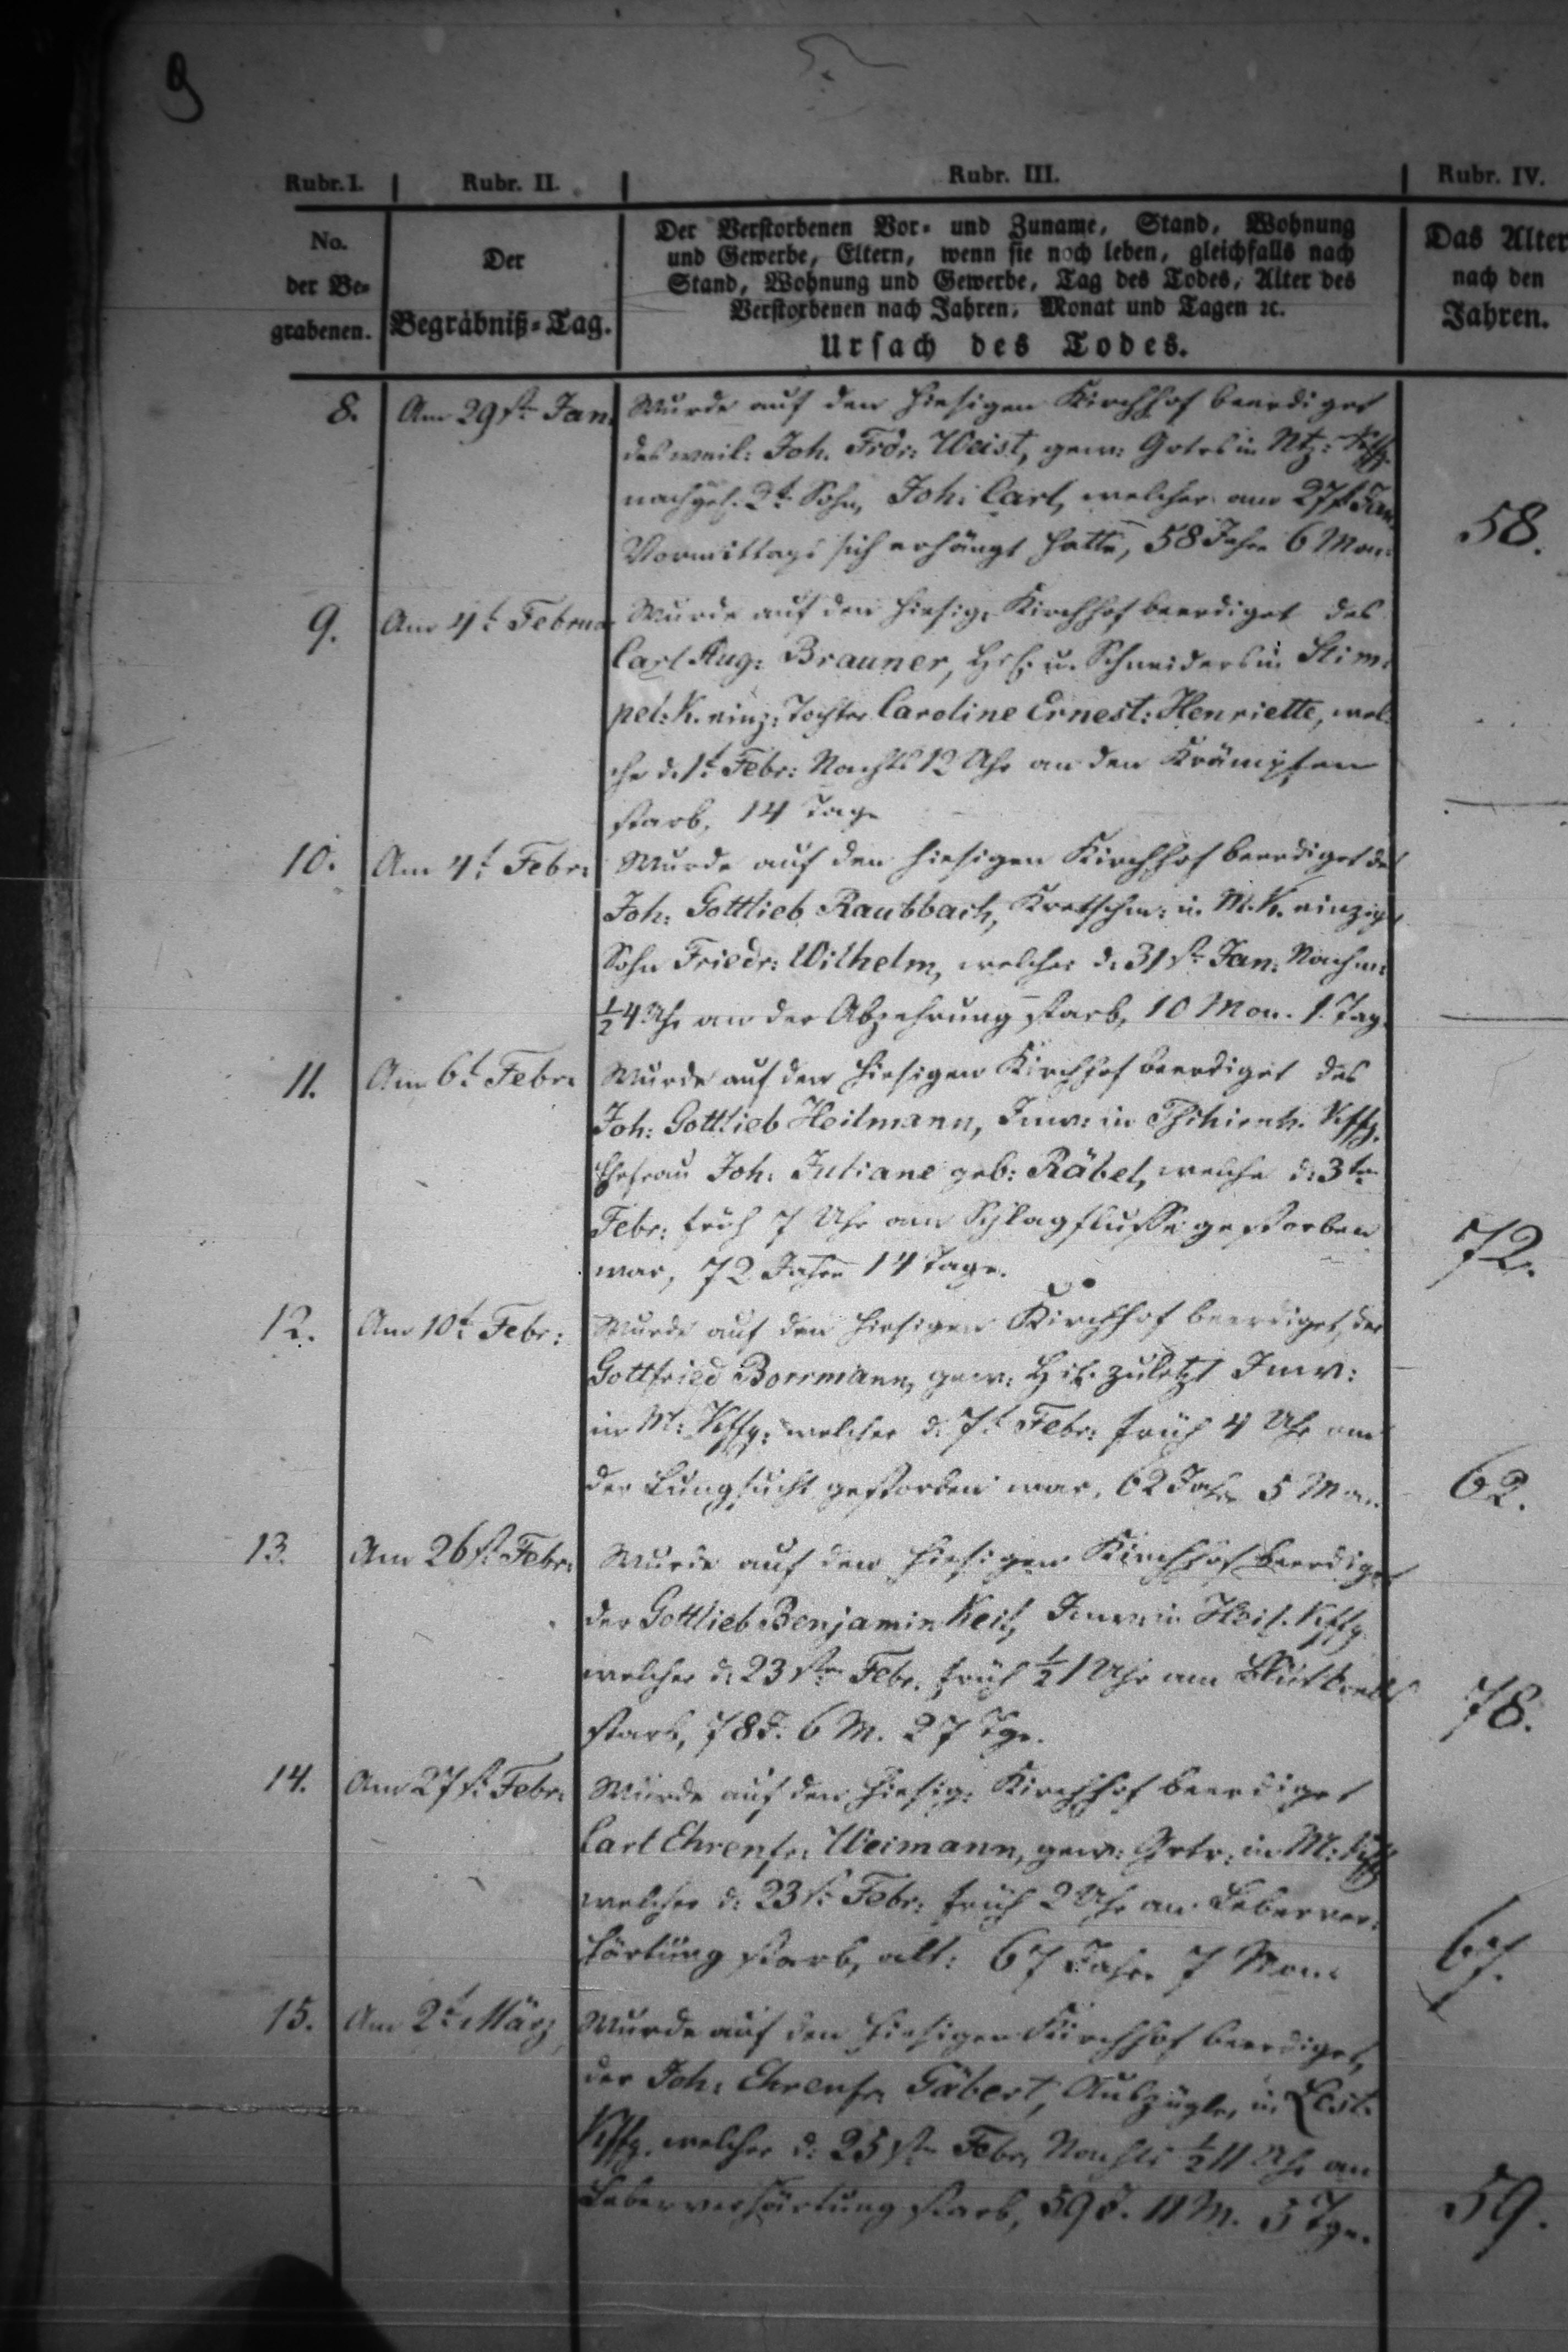 9
Rubr. I. Rubr. II. Rubr. III. Rubr. IV.
No. der Be- grabenen.
Der Begräbniß-Tag.
Der Verstorbenen Vor- und Zuname, Stand, Wohnung
und Gewerbe, Eltern, wenn sie noch leben, gleichfalls nach
Stand, Wohnung und Gewerbe, Tag des Todes, Alter des
Verstorbenen nach Jahren, Monat und Tagen ꝛc.
Ursach des Todes.
Das Alter
nach den
Jahren.
8. Am 29st. Jan. Wurde auf den hiesigen Kirchhof beerdiget
des weil: Joh. Frdr: Weist, gew: in Ntz: Kffg.
nachgel. 2t. Sohn, Joh: Carl, welcher am 27st Jan.
Vormittags sich erhängt hatte, 58 Jahr 6 Mon: 58.
9. Am 4t. Februar Wurde auf den hiesig: Kirchhof beerdiget des
Carl Aug: Brauner, u. Schneiders in Stim-
pel: K. einz: Tochter Caroline Ernest: Henriette, wel-
che d. 1t. Febr: Nachts 12 Uhr an den Krämpfen
starb, 14 Tage
10. Am 4t. Febr: Wurde auf den hiesigen Kirchhof beerdiget des
Joh: Gottlieb Raubbach, Kretschm: in M. K. einziger
Sohn Friedr: Wilhelm, welcher d. 31st. Jan: Nachm:
½4 Uhr an der Abzehrung starb, 10 Mon. 1. Tag.
11. Am 6t Febr: Wurde auf den hiesigen Kirchhof beerdiget des
Joh: Gottlieb Heilmann, Inw: in Kffg.
Ehefrau Joh: Juliane geb: Räbel, welche d: 3ten
Febr: früh 7 Uhr am Schlagflusse gestorben
war, 72 Jahre 14 Tage. 72.
12. Am 10t. Febr: Wurde auf den hiesigen Kirchhof beerdiget, der
Gottfried Borrmann, gew: zuletzt Inw:
in M: Kffg: welcher d: 7t Febr: früh 4 Uhr an
der Lungsucht gestorben war, 62 Jahr 5 Mon. 62.
13. Am 26st. Febr: Wurde auf den hiesigen Kirchhof beerdiget
der Gottlieb Benjamin Keil, Inw: in Heil. Kffg
welcher d: 23sten Febr. früh ½1 Uhr am
starb, 78 J. 6 M. 27 Tge. 78.
14. Am 27st. Febr: Wurde auf den hiesig: Kirchhof beerdiget
Carl Ehrenfr: Weimann, gew: Grtr: in M: Kffg
welcher d: 23st. Febr: früh 2 Uhr an Leberver-
härtung starb, alt: 67 Jahr 7 Mon: 67.
15. Am 2t. März Wurde auf den hiesigen Kirchhof beerdiget,
der Joh: Ehrenfr: Gäbert, Auszügler in Lest:
Kffg. welcher d: 25sten Febr: Nachts ½11 Uhr an
Leberverhärtung starb, 59 J. 11 M. 5 Tge. 59.